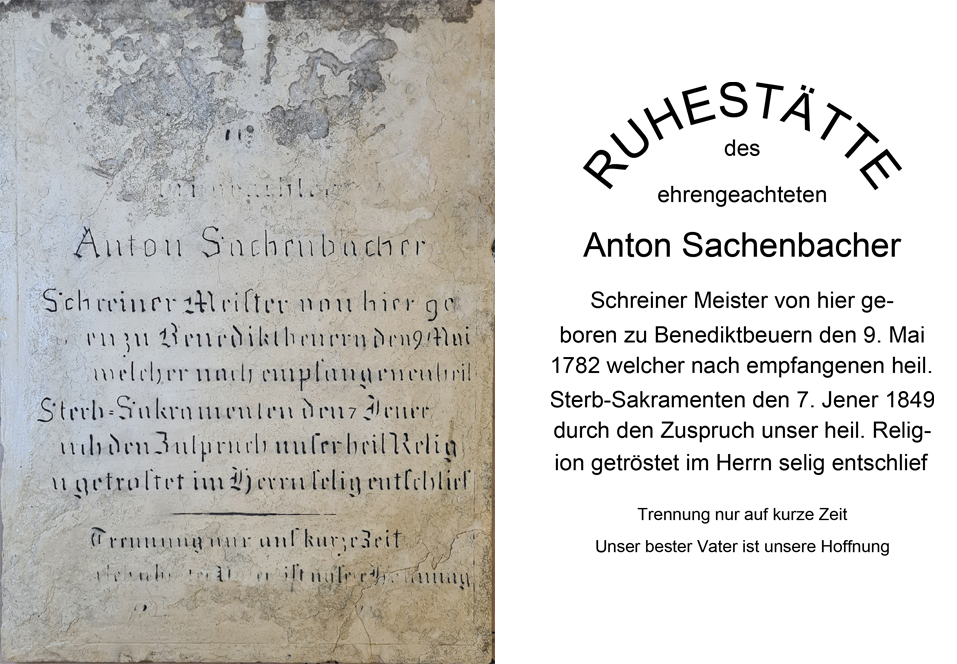 Anton Sachenbacher
Schreiner Meister von hier ge
en zu Benediktbeuern den 9 Mai
welcher nach empfangenen heil
Sterb-Sakramenten den 7 Jener
uch den Zuspruch unser heil Relig
n getrostet im Herrn selig entschlief
Trennung nur auf kurze Zeit
RUHESTÄTTE
des
ehrengeachteten
Anton Sachenbacher
Schreiner Meister von hier ge-
boren zu Benediktbeuern den 9. Mai
1782 welcher nach empfangenen heil.
Sterb-Sakramenten den 7. Jener 1849
durch den Zuspruch unser heil. Relig-
ion getröstet im Herrn selig entschlief
Trennung nur auf kurze Zeit
Unser bester Vater ist unsere Hoffnung